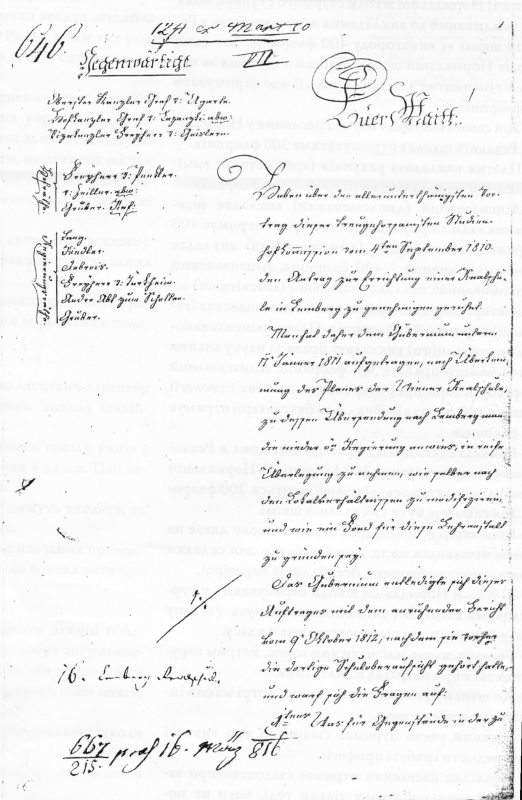 646.
12ſt & Martio
Gegenwärtige.
VII.
Oberſter Kanzler Graf v: Ugarte.
Hofkanzler Graf v: Lazanzky abs:
Vizekanzler Freyherr v: Geislern.
Euere Majeſtät.
Hofräthe
Freyherr v:
v: Haller abs:
Gruber. Ref:
Lang.
Hindler.
Debrois.
Freyherr v: Türkheim.
Andre Abt zum Schotten.
Gruber.
Haben über den allerunterthänigſten Vor-
trag dieſer treugehorſamſten Studien-
hofkommiſſion vom 4ten September 1810.
den Antrag zur Errichtung einer Realſchu-
le in Lemberg zu genehmigen geruhet.
Man hat daher dem Gubernium unterm
17. Jäner 1811 aufgetragen, nach Überkom-
mung des Planes der Wiener Realſchule,
zu deſſen Überſendung nach Lemberg man
die nieder öſt: Regierung anwies, in reife
Überlegung zu nehmen, wie ſelber nach
den Lokalverhältniſſen zu modifiziren,
und wie ein Fond für dieſe Lehranſtalt
zu gründen ſey.
Das Gubernium entledigte ſich dieſes
Auftrages mit dem anruhenden Bericht
vom 9. Oktober 1812, nachdem ſie vorher
die dortige Schuloberaufſicht gehört hatte,
und warf ſich die Fragen auf:
1tens Was für Gegenſtände in der zu
16. Lemberg Realſchul.
667
215. praeſ 16. März 816